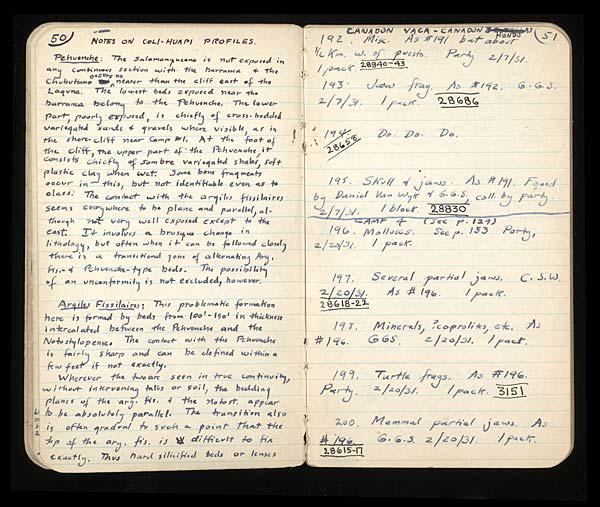 50
NOTES ON COLI-HUAPI PROFILES.
Pehuenche: The Salamanqueano is not exposed in
any continuous section with the barranca & the
Chubutiano nearer than the cliff east of the
Laguna. The lowest beds exposed near the
barranca belong to the Pehuenche. The lower
part, poorly exposed, is chiefly of cross-bedded
variegated sands & gravels where visible, as in
the shore-cliff near Camp #1. At the foot of
the cliff, the upper part of the Pehuenche, it
consists chiefly of sombre variegated shales, soft
plastic clay when wet. Some bone fragments
occur in this, but not identifiable even as to
class. The contact with the argiles fissilaires
seems everywhere to be plane and parallel, al-
though not very well exposed except to the
east. It involves a brusque change in
lithology, but often when it can be followed closely
there is a transitional zone of alternating Arg.
fis.- & Pehuenche-type beds. The possibility
of an unconformity is not excluded, however.
Argiles Fissilaires: This problematic formation
here is formed by beds from 100'-150' in thickness
intercalated between the Pehuenche and the
Notostylopense. The contact with the Pehuenche
is fairly sharp and can be defined within a
few feet if not exactly.
Wherever the two are seen in true continuity,
without intervening talus or soil, the bedding
planes of the arg. fis. & the notost. appear
to be absolutely parallel. The transition also
is often gradual to such a point that the
top of the arg. fis. is difficult to fix
exactly. Thus hard silicified beds or lenses
CANADON VACA - CANADON HONDO
51
192. Misc. As #191 but about
1/2 Km. w. of puesto. Party 2/7/31.
1 pack. 28840-43
193. Jaw frag. As #192. G.G.S.
2/7/31. 1 pack. 28686
194. Do. Do. Do.
28658
195. Skull & jaws. As #191. Found
by Daniel Van Wyk & G.G.S., coll by party.
2/7/31. 1 block. 28830
CAMP 4 (See p. 129)
196. Molluscs. See p. 153 Party,
2/20/31. 1 pack.
197. Several partial jaws. C.S.W.
2/20/31. As #196. 1 pack.
28618-22
198. Minerals, ?coprolites, etc. As
#196. GGS. 2/20/31. 1 pack.
199. Turtle frags. As #196.
Party. 2/20/31. 1 pack. 3151
200. Mammal partial jaws. As
#196. G.G.S. 2/20/31. 1 pack.
28615-17